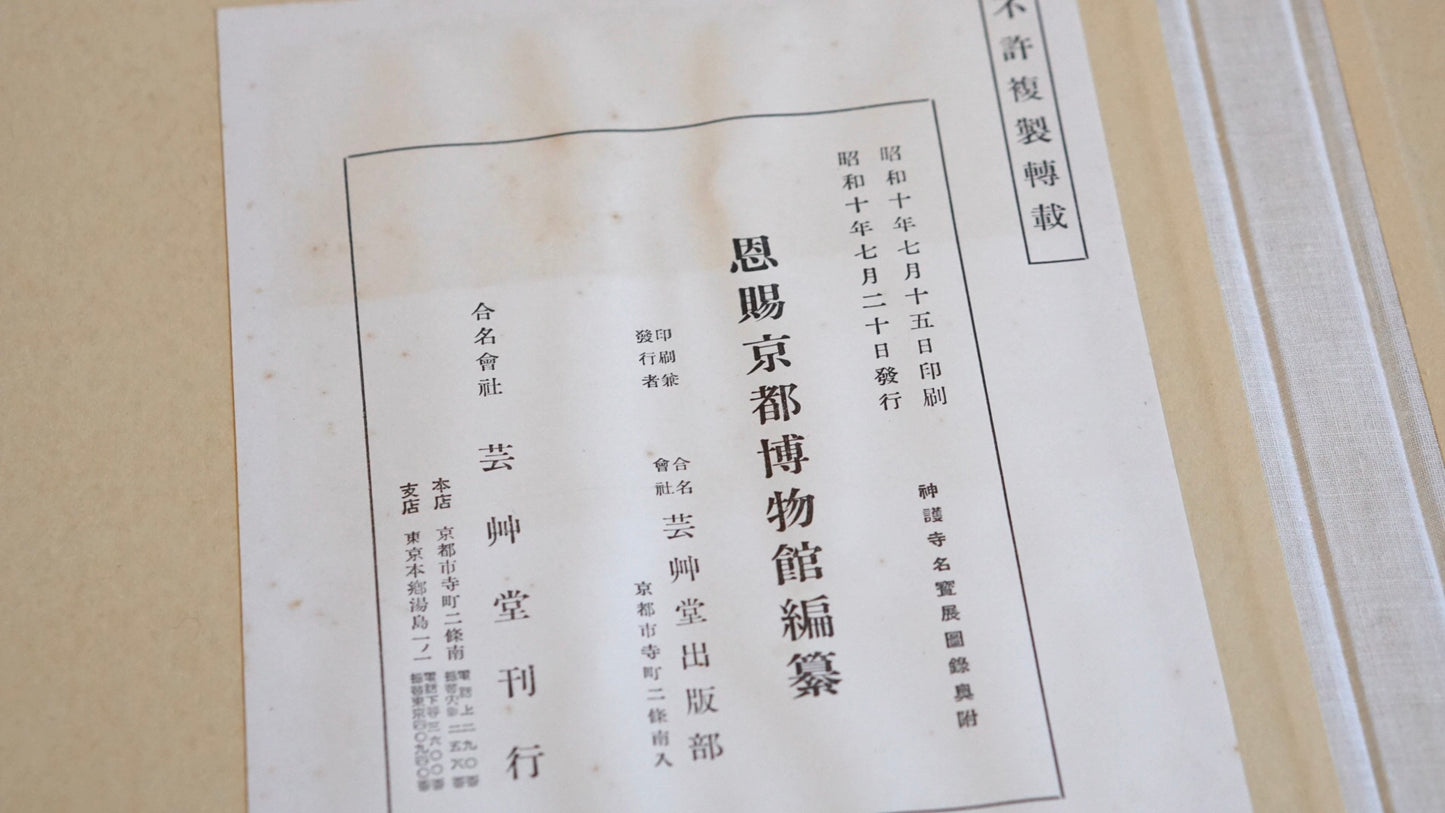 不許複製轉載
昭和十年七月十五日印刷
昭和十年七月二十日發行
神護寺名寳展圖錄奥附
恩賜京都博物館編纂
印刷兼
發行者
合名
會社
芸艸堂出版部
京都市寺町二條南入
合名會社 芸艸堂刊行
本店 京都市寺町二條南
電話上二九〇
支店 東京本鄕湯島一ノ一
電話下谷三六〇〇
振替東京四〇九四〇